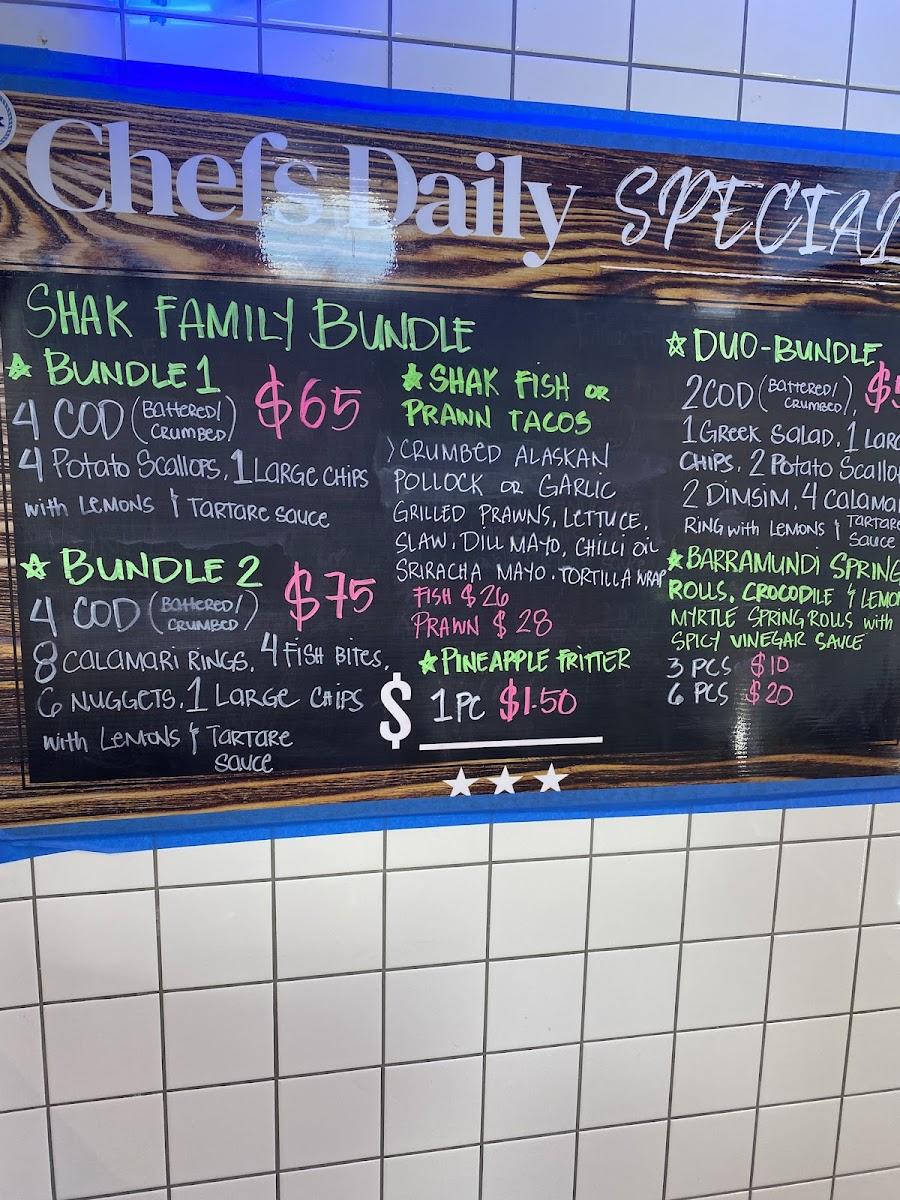 Chefs Daily SPECIAL
SHAK FAMILY BUNDLE
BUNDLE 1
$65
4 COD (BATTERED/
CRUMBED)
4 POTATO SCALLOPS, 1 LARGE CHIPS
WITH LEMONS & TARTARE SAUCE
BUNDLE 2
$75
4 COD (BATTERED/
CRUMBED)
8 CALAMARI RINGS, 4 FISH BITES,
6 NUGGETS, 1 LARGE CHIPS
WITH LEMONS & TARTARE
SAUCE
SHAK FISH OR
PRAWN TACOS
CRUMBED ALASKAN
POLLOCK OR GARLIC
GRILLED PRAWNS, LETTUCE,
SLAW, DILL MAYO, CHILLI OIL
SRIRACHA MAYO. TORTILLA WRAP
FISH $26
PRAWN $28
PINEAPPLE FRITTER
1 PC $1.50
$
DUO-BUNDLE
2 COD (BATTERED/
CRUMBED),
1 GREEK SALAD, 1
CHIPS, 2 POTATO
2 DIMSIM, 4
RING WITH LEMONS & TARTARE
SAUCE
BARRAMUNDI SPRING
ROLLS, CROCODILE & LEMON
MYRTLE SPRING ROLLS WITH
SPICY VINEGAR SAUCE
3 PCS $10
6 PCS $20